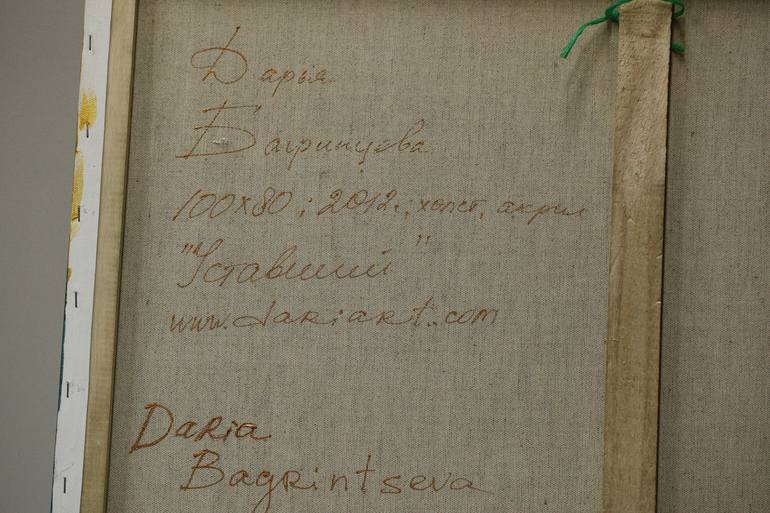 Дарья
Багринцева
100×80 ; 2012г; холст, акрил
"Уставший"
www.dariart.com
Daria
Bagrintseva